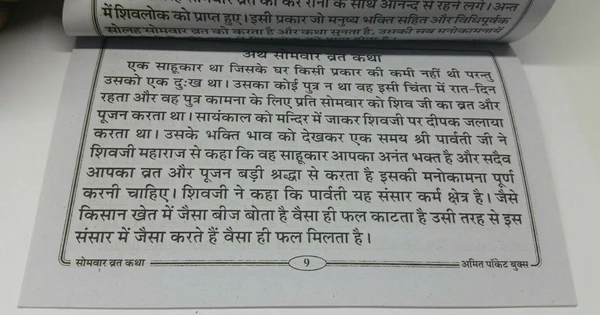 में शिवलोक को प्राप्त हुए। इसी प्रकार जो मनुष्य भक्ति सहित और विधिपूर्वक
सोलह सोमवार व्रत को करता है और कथा सुनता है, उसकी सब मनोकामनायें
अथ सोमवार व्रत कथा
एक साहूकार था जिसके घर किसी प्रकार की कमी नहीं थी परन्तु
उसको एक दुःख था। उसका कोई पुत्र न था वह इसी चिंता में रात-दिन
रहता और वह पुत्र कामना के लिए प्रति सोमवार को शिव जी का व्रत और
पूजन करता था। सायंकाल को मन्दिर में जाकर शिवजी पर दीपक जलाया
करता था। उसके भक्ति भाव को देखकर एक समय श्री पार्वती जी ने
शिवजी महाराज से कहा कि वह साहूकार आपका अनंत भक्त है और सदैव
आपका व्रत और पूजन बड़ी श्रद्धा से करता है इसकी मनोकामना पूर्ण
करनी चाहिए। शिवजी ने कहा कि पार्वती यह संसार कर्म क्षेत्र है। जैसे
किसान खेत में जैसा बीज बोता है वैसा ही फल काटता है उसी तरह से इस
संसार में जैसा करते हैं वैसा ही फल मिलता है।
सोमवार व्रत कथा 9 अमित पॉकेट बुक्स